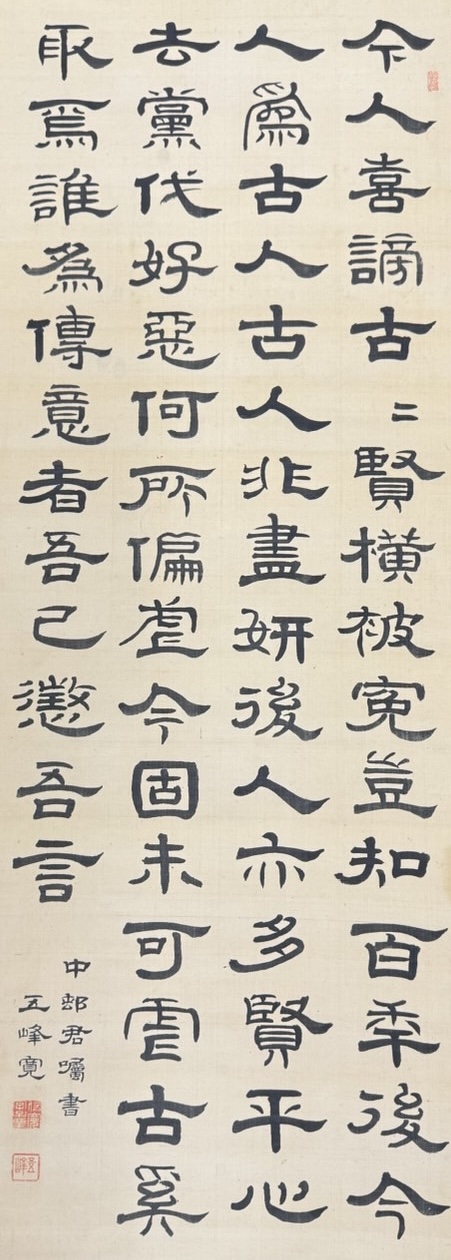 今人喜謗古〻賢橫被冤豈知百秊後今
人爲古人古人非盡妍後人亦多賢平心
去黨伐好惡何所偏虐今固未可虐古奚
取焉誰爲傳意者吾已懲吾言
中邨君囑書
五峰寬